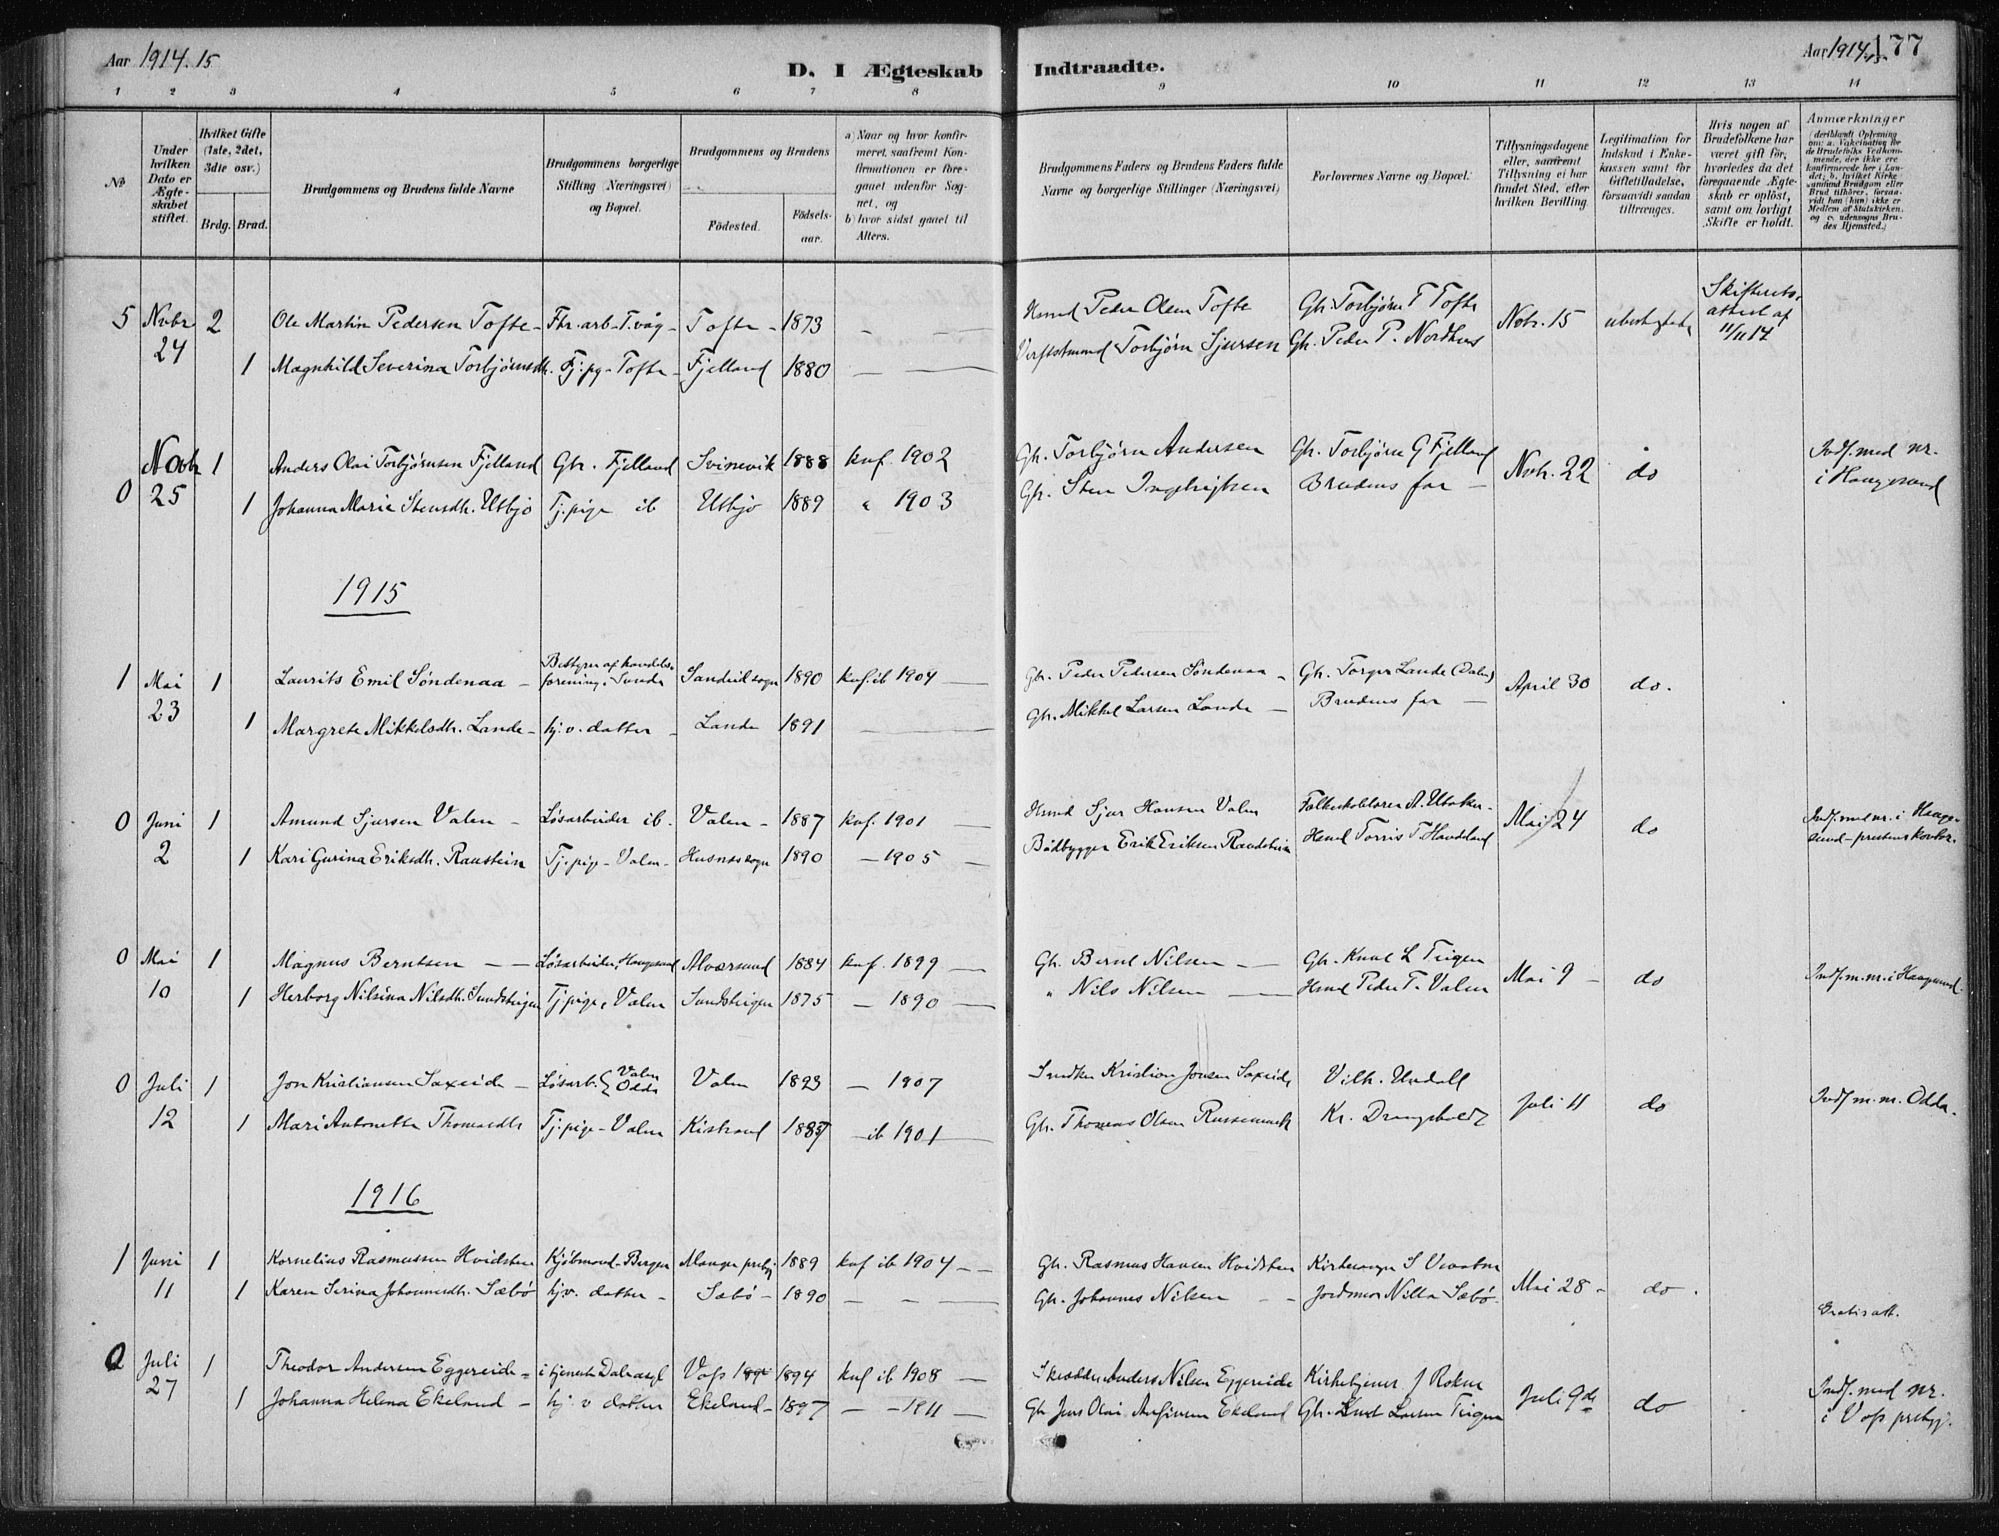 Aar 1914.15
D. I Ægteskab Indtraadte.
Aar 1914.15. 177
1 2 3 4 5 6 7 8 9 10 11 12 13 14
No
Under hvilken Dato er Ægteskabet stiftet.
Hvilket Gifte (1ste, 2det, 3die osv.)
Brdg. Brud.
Brudgommens og Brudens fulde Navne
Brudgommens borgerlige Stilling (Næringsvei) og Bopæl.
Brudgommens og Brudens
Fødested.
Fødselsaar.
a) Naar og hvor konfirmeret, saafremt Konfirmationen er foregaaet udenfor Sognet, og
b) hvor sidst gaaet til Alters.
Brudgommens Faders og Brudens Faders fulde Navne og borgerlige Stillinger (Næringsvei)
Forlovernes Navne og Bopæl.
Tillysningsdagene eller, saafremt Tillysning ei har fundet Sted, efter hvilken Bevilling.
Legitimation for Indskud i Enkekassen samt for Giftetilladelse, forsaavidt saadan tiltrænges.
Hvis nogen af Brudefolkene har været gift før, hvorledes da det foregaaende Ægteskab er opløst, samt om lovligt Skifte er holdt.
Anmærkninger
(deriblandt Oplysning om: a. Vakcination for de Brudefolks Vedkommende, der ikke ere konfirmerede her i Landet; b. hvilket Kirkesamfund Brudgom eller Brud tilhører, forsaavidt han (hun) ikke er Medlem af Statskirken, og c. udensogns Brudes Hjemsted.)
5 Novbr 2 Ole Martin Pedersen Tofte - Fbr. arb - T.våg - Tofte - 1873 - - Peder Olsen Tofte Gbr. Torbjørn T Tofte Nobr. 15 ubestyrtede Skifterets. attest af 11/11 14
24 1 Magnhild Severina Torbjørnsdtr. Tj. pg - Tofte - Fjelland 1880 - - Torbjørn Sjursen Gbr. Peder P. Nordhus
Novbr 1 Anders Olai Torbjørnsen Fjelland Gbr. Fjelland Svinevik 1888 knf. 1902 Gbr. Torbjørn Andersen Gbr. Torbjørn G Fjelland Novbr. 22 do Indf. med nr. i Haugesund
0 25 1 Johanna Marie Stensdtr. Utbjo Tj. pige ib Utbjo 1889 " 1903 Gbr. Sten Ingebrigtsen Brudens far -
1915
1 Mai 1 Laurits Emil Söndenaa - Bestyrer af handelsforening, Sunde Sandeid sogn 1890 knf. ib 1904 - Gbr. Peder Pedersen Söndenaa - Gbr. Torger Lande (Dalen) April 30 do.
23 1 Margrete Mikkelsdtr. Lande - hj. v. datter - Lande 1891 - Gbr. Mikkel Larsen Lande - Brudens far -
0 Juni 1 Amund Sjursen Valen - Løsarbeider ib. Valen - 1887 knf. 1901 - Sjur Hansen Valen A. Utaaker - Mai 24 do Indf. med nr. i Haugesund - prestens kontor.
2 1 Kari Gurina Eriksdtr. Raustein Tj. pige - Valen - Husnes sogn 1890 - 1905 - Bådbygger Erik Eriksen Raudstein Torris T Handeland
0 Mai 1 Magnus Berntsen - - Løsarbeider, Haugesund Alversund 1884 knf. 1899 - Gbr. Bernt Nilsen - Gbr. Knut L Teigen Mai 9 - do Indf. m. nr. i Haugesund.
10 1 Herborg Nilsina Nilsdtr. Sundsteigen Tj. pige, Valen Sundsteigen 1875 - 1890 - " Nils Nilsen - Peder T. Valen
0 Juli 1 Jon Kristiansen Saxeide - Løsarb. { Valen Odda Valen 1893 - 1907 Kristian Jonsen Saxeide Vilh. Undall Juli 11 do Indf m. nr. Odda.
12 1 Mari Antonette Thomasdtr Tj. pige - Valen Kistrand 1885 - ib 1901 - Gbr. Thomas Olsen Russemark Kr. Drangsholdt
1916
1 Juni 1 Kornelius Rasmussen Hvidsten Kjöbmand - Bergen Manger prstgj 1889 knf ib 1904 - - Gbr. Rasmus Hansen Hvidsten Kirkesanger S Mai 28 - do.
11 1 Karen Serina Johannesdtr. Sæbö hj. v. datter - Sæbö - 1890 - - - Gbr. Johannes Nilsen - - Jordmor Nilla Sæbö
Gratis att.
0 Juli 1 Theodor Andersen Eggereide - i tjeneste Dale asyl Voss 1894 knf ib 1908 - Skrædder Anders Nilsen Eggereide Kirketjener J Rokne Juli 9de do Indf. med nr. i Voss prstgj.
27 1 Johanna Helena Ekeland - hj. v datter Ekeland - 1897 - - 1911 - Gbr Jens Olai Ekeland Gbr. Knut Larsen Teigen